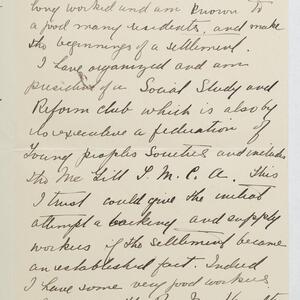 long worked and am known to
a good many residents, and make
the beginnings of a settlement.
I have organized and am
president of a Social Study and
Reform Club which is also by
its executive a federation of
Young peoples Societies and includes
the McGill Y.M.C.A. This
I trust could give the initial
attempt a backing and supply
workers if the settlement became
an established fact. Indeed
I have some very good workers